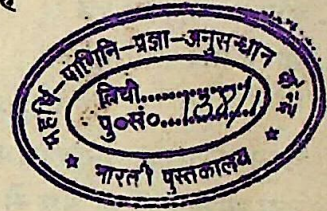 महर्षि-पाणिनि-प्रज्ञा-अनुसन्धान
तिथी..............
पु०सं०....1381/1
★ भारती पुस्तकालय ★